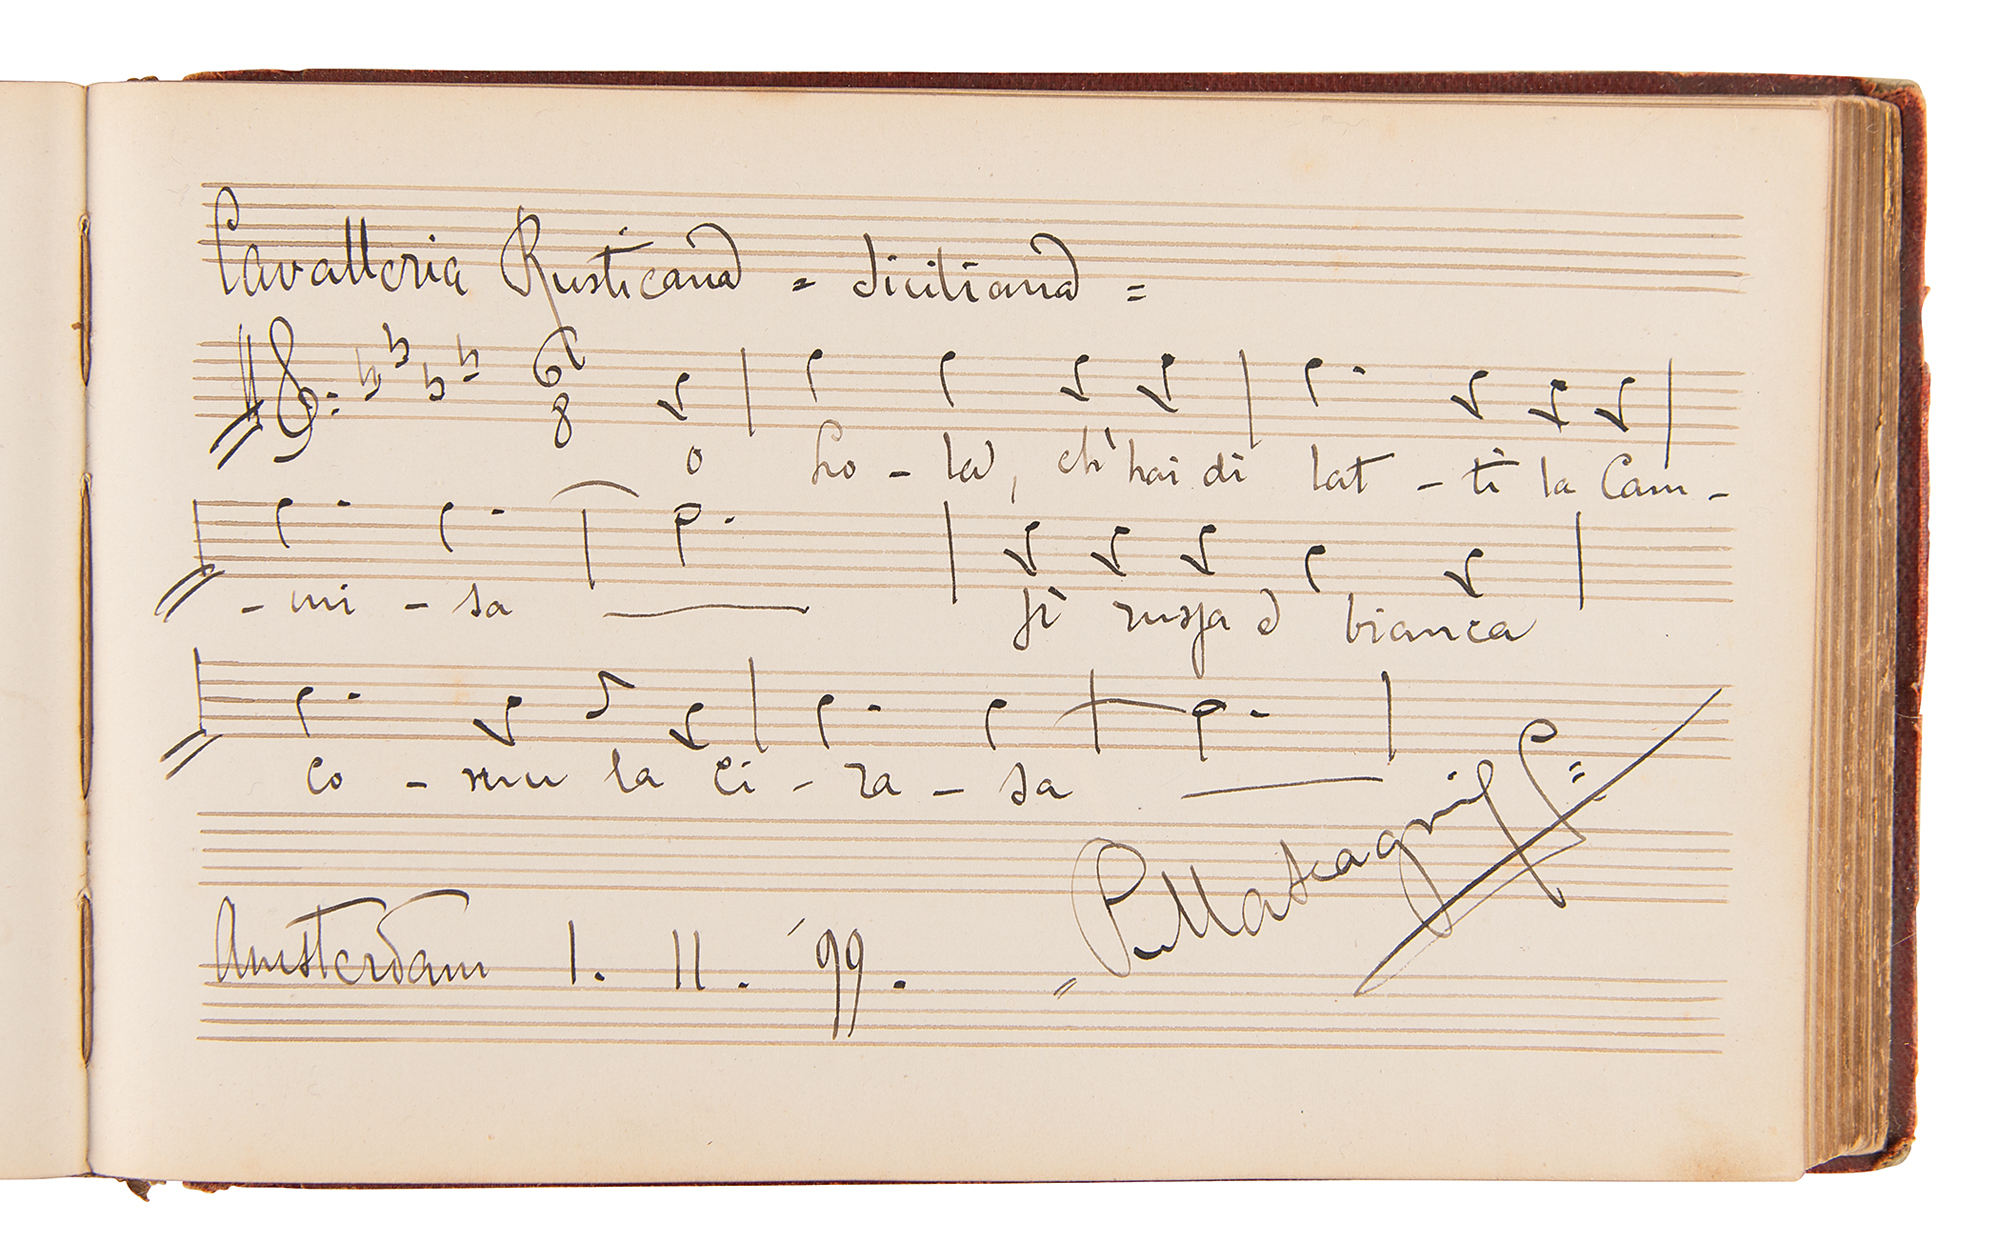 Cavalleria Rusticana = Siciliana =
6/8
O Lo - la, ch'hai di lat - ti la Cam -
- mi - sa
si russa e bianca
co - mu la ci - ra - sa
P. Mascagni
Amsterdam 1. 11. '99.